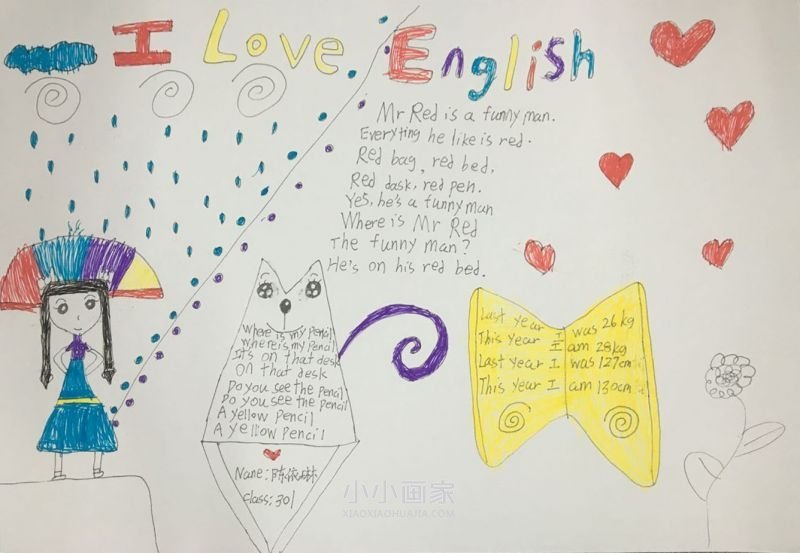 I Love English
Mr Red is a funny man.
Everyting he like is red.
Red bag, red bed,
Red dask, red pen.
Yes, he's a funny man
Where is Mr Red
The funny man?
He's on his red bed.
Where is my pencil
where is my pencil
It's on that desk
on that desk
Do you see the pencil
Do you see the pencil
A yellow pencil
A yellow pencil
Name: 陈依琳
Class: 301
Last year I was 26kg
This year I am 28kg
Last year I was 127cm
This year I am 130cm
小小画家
XIAOXIAOHUAJIA.COM